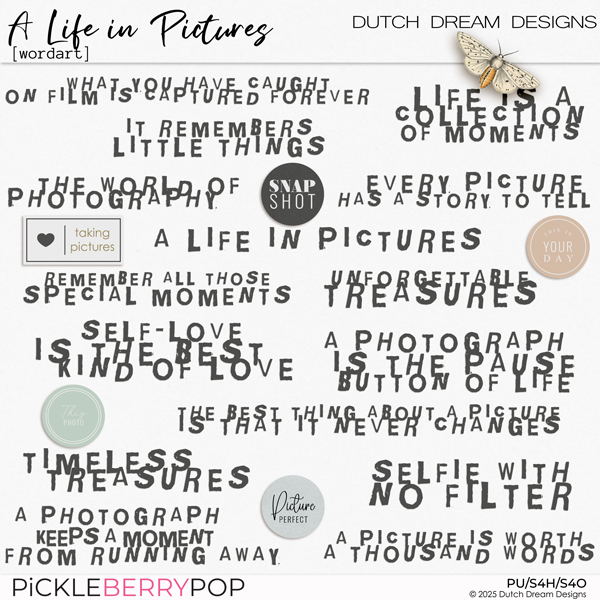 A Life in Pictures
[wordart]
DUTCH DREAM DESIGNS
WHAT YOU HAVE CAUGHT
ON FILM IS CAPTURED FOREVER
LIFE IS A
COLLECTION
OF MOMENTS
IT REMEMBERS
LITTLE THINGS
THE WORLD OF
PHOTOGRAPHY.
SNAP
SHOT
EVERY PICTURE
HAS A STORY TO TELL
taking
pictures
A LIFE IN PICTURES
THIS IS
YOUR
DAY
REMEMBER ALL THOSE
SPECIAL MOMENTS
UNFORGETTABLE
TREASURES
SELF-LOVE
IS THE BEST
KIND OF LOVE
A PHOTOGRAPH
IS THE PAUSE
BUTTON OF LIFE
This
PHOTO
THE BEST THING ABOUT A PICTURE
IS THAT IT NEVER CHANGES
TIMELESS
TREASURES
Picture
PERFECT
SELFIE WITH
NO FILTER
A PHOTOGRAPH
KEEPS A MOMENT
FROM RUNNING AWAY.
A PICTURE IS WORTH
A THOUSAND WORDS
PiCKLEBERRYPOP
PU/S4H/S4O
© 2025 Dutch Dream Designs